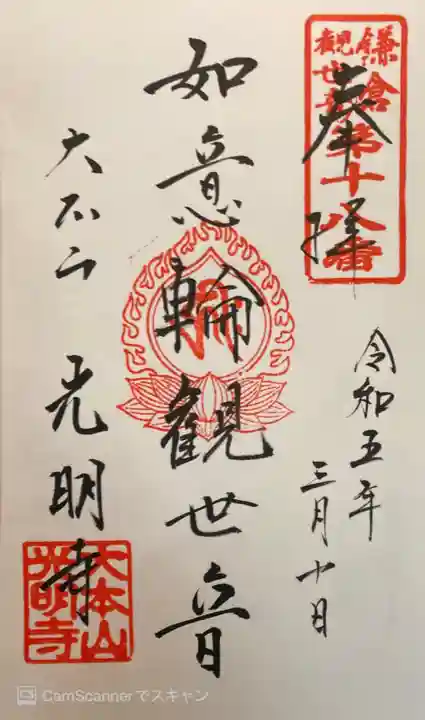 鎌倉第十八番
観世音
奉拝
令和五年
三月十日
如意輪観世音
大本山 光明寺
大本山
光明寺
CamScannerでスキャン